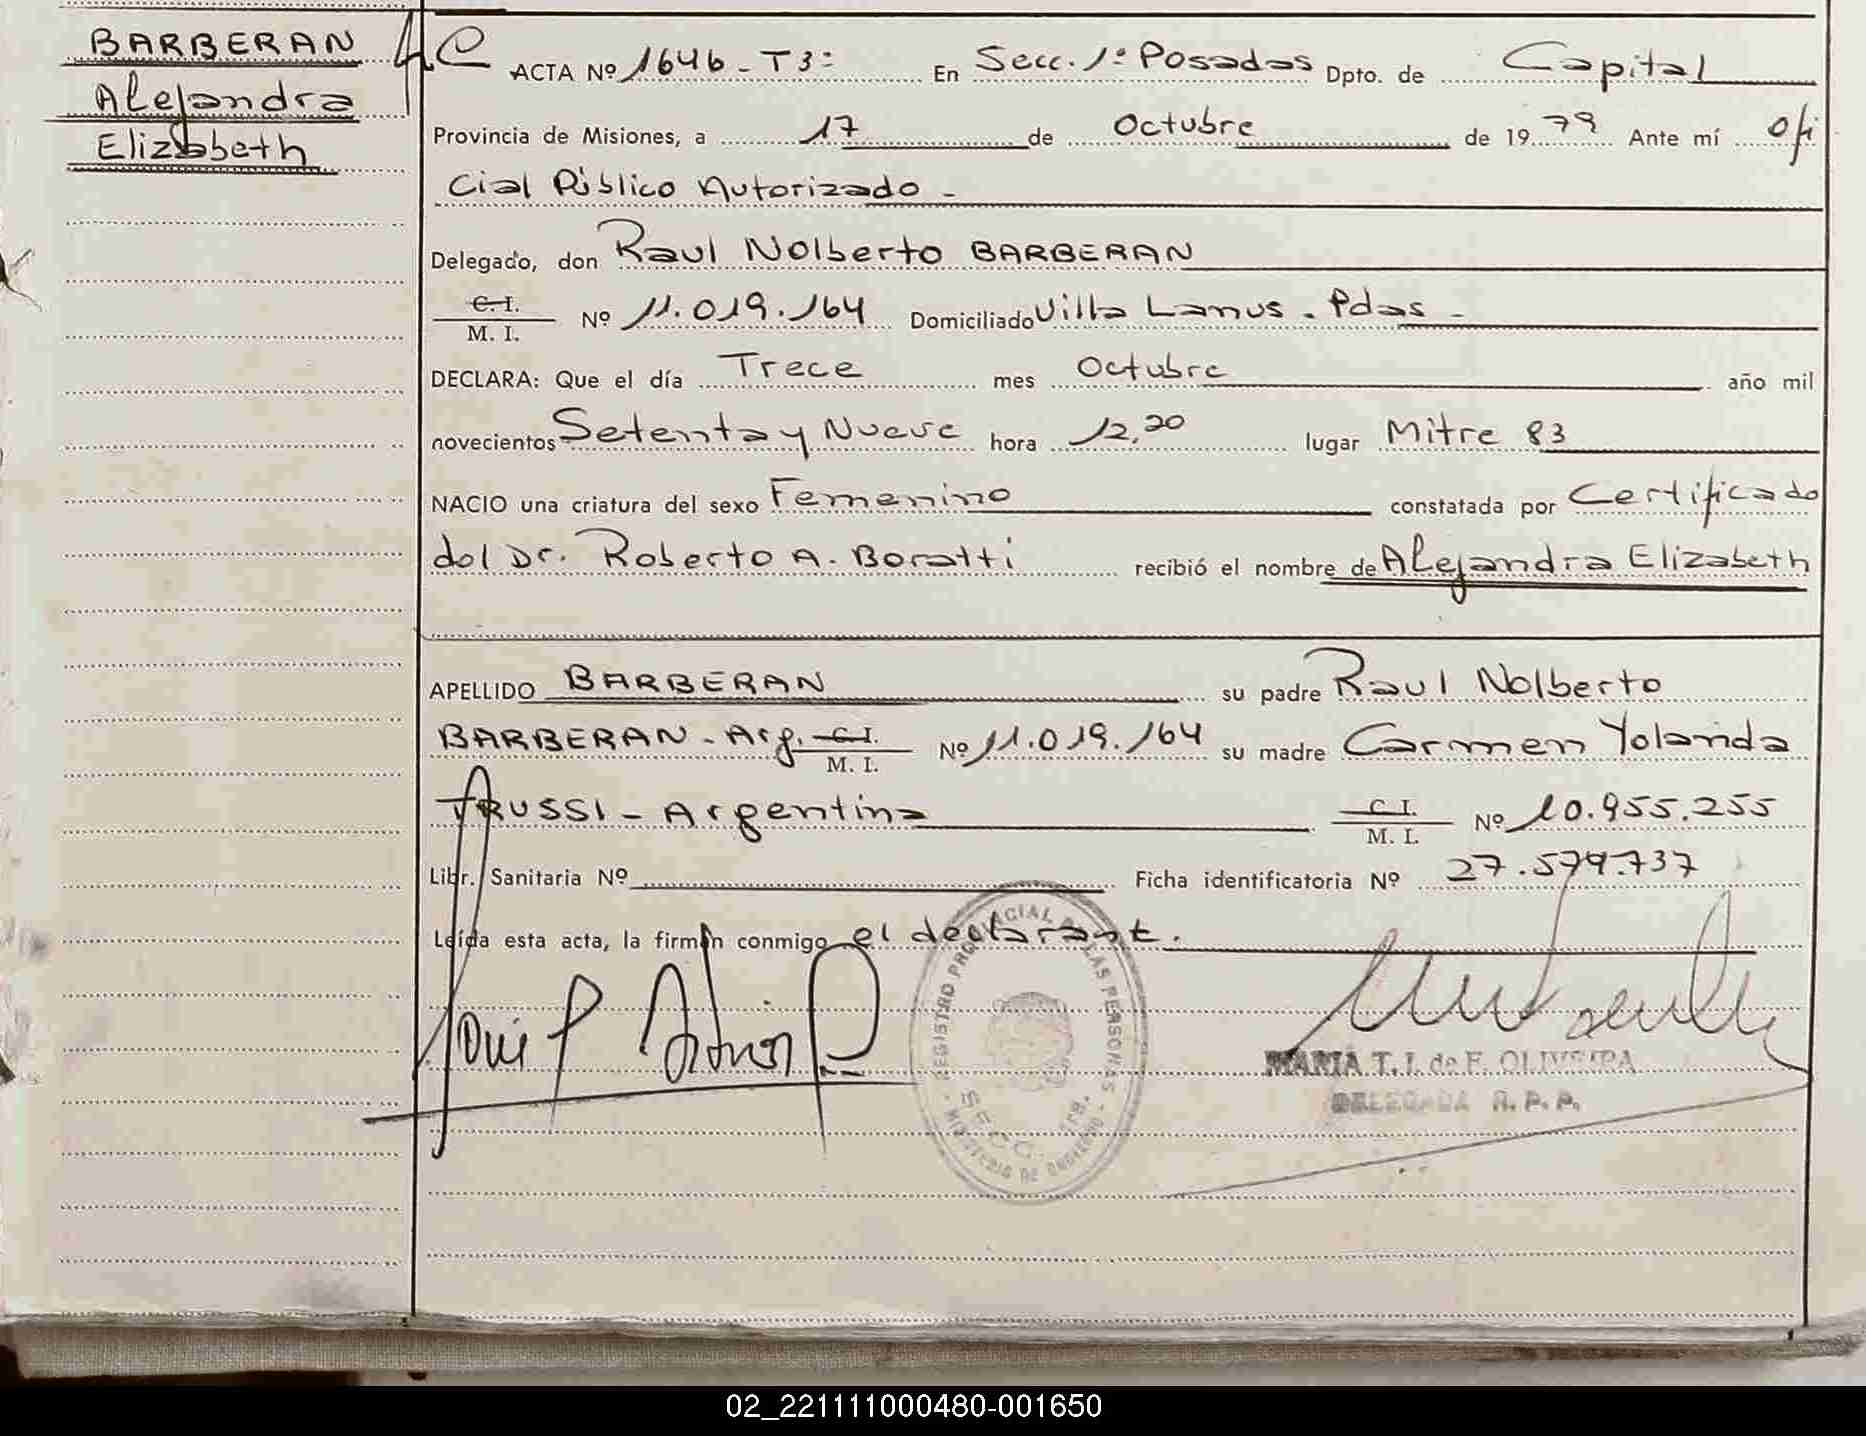 BARBERAN
Alejandra
Elizabeth
ACTA Nº 1646 - T3º En Secc. 1º Posadas Dpto. de Capital
Provincia de Misiones, a 17 de Octubre de 1979 Ante mí Ofi
cial Público Autorizado -
Delegado, don Raul Nolberto BARBERAN
C. I.
M. I. Nº 11.019.164 Domiciliado Villa Lanus . Pdas -
DECLARA: Que el día Trece mes Octubre año mil
novecientos Setenta y Nueve hora 12,20 lugar Mitre 83
NACIO una criatura del sexo Femenino constatada por Certificado
del Dr. Roberto A. Boratti recibió el nombre de Alejandra Elizabeth
APELLIDO BARBERAN su padre Raul Nolberto
BARBERAN - Arg. C. I.
M. I. Nº 11.019.164 su madre Carmen Yolanda
TRUSSI - Argentina C. I.
M. I. Nº 10.955.255
Libr. Sanitaria Nº Ficha identificatoria Nº 27.579.737
Leída esta acta, la firman conmigo el declarant.
REGISTRO PROVINCIAL DE LAS PERSONAS
SECC. 1ra.
MINISTERIO DE GOBIERNO
MARIA T. I. de F. OLIVEIRA
DELEGADA R. P. P.
02_221111000480-001650